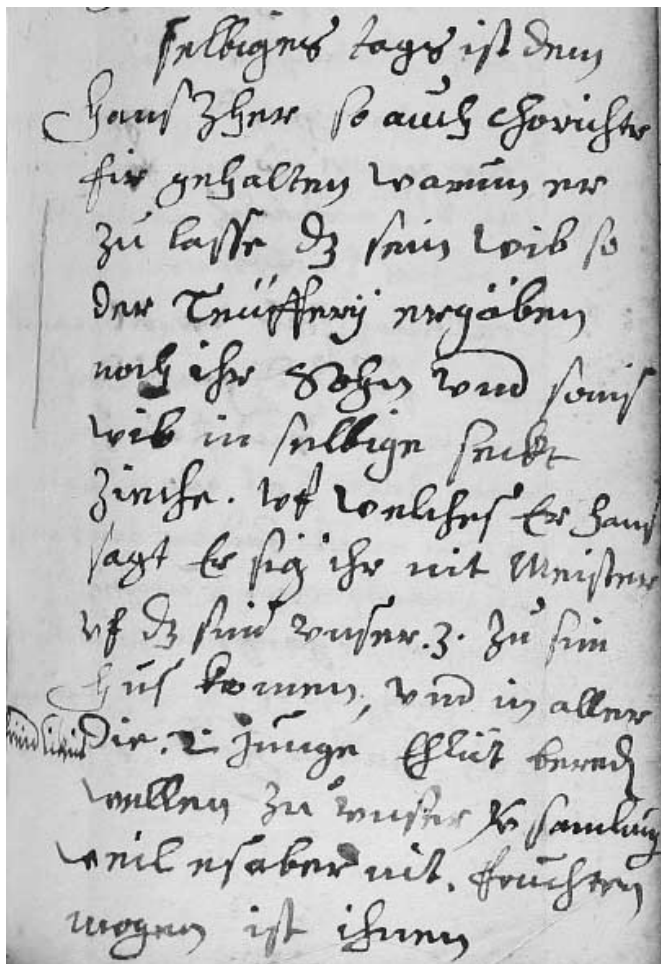 selbiges tags ist dem
Hans Zher so auch Chorichter
fir gehalten warum er
zu lasse dz sein wib so
der Teüffery ergäben
noch ihr Sohn vnd sonis
wib in selbige seckt
Ziehe. Vf welches Er Hans
sagt Er sig ihr nit Meister
vf dz sind vnser .3. Zu sim
hus komen, vnd in aller
die .2. Junge Ehlüt bered
wellen zu vnser samlung
weil es aber nit. fruchten
mogen ist ihnen